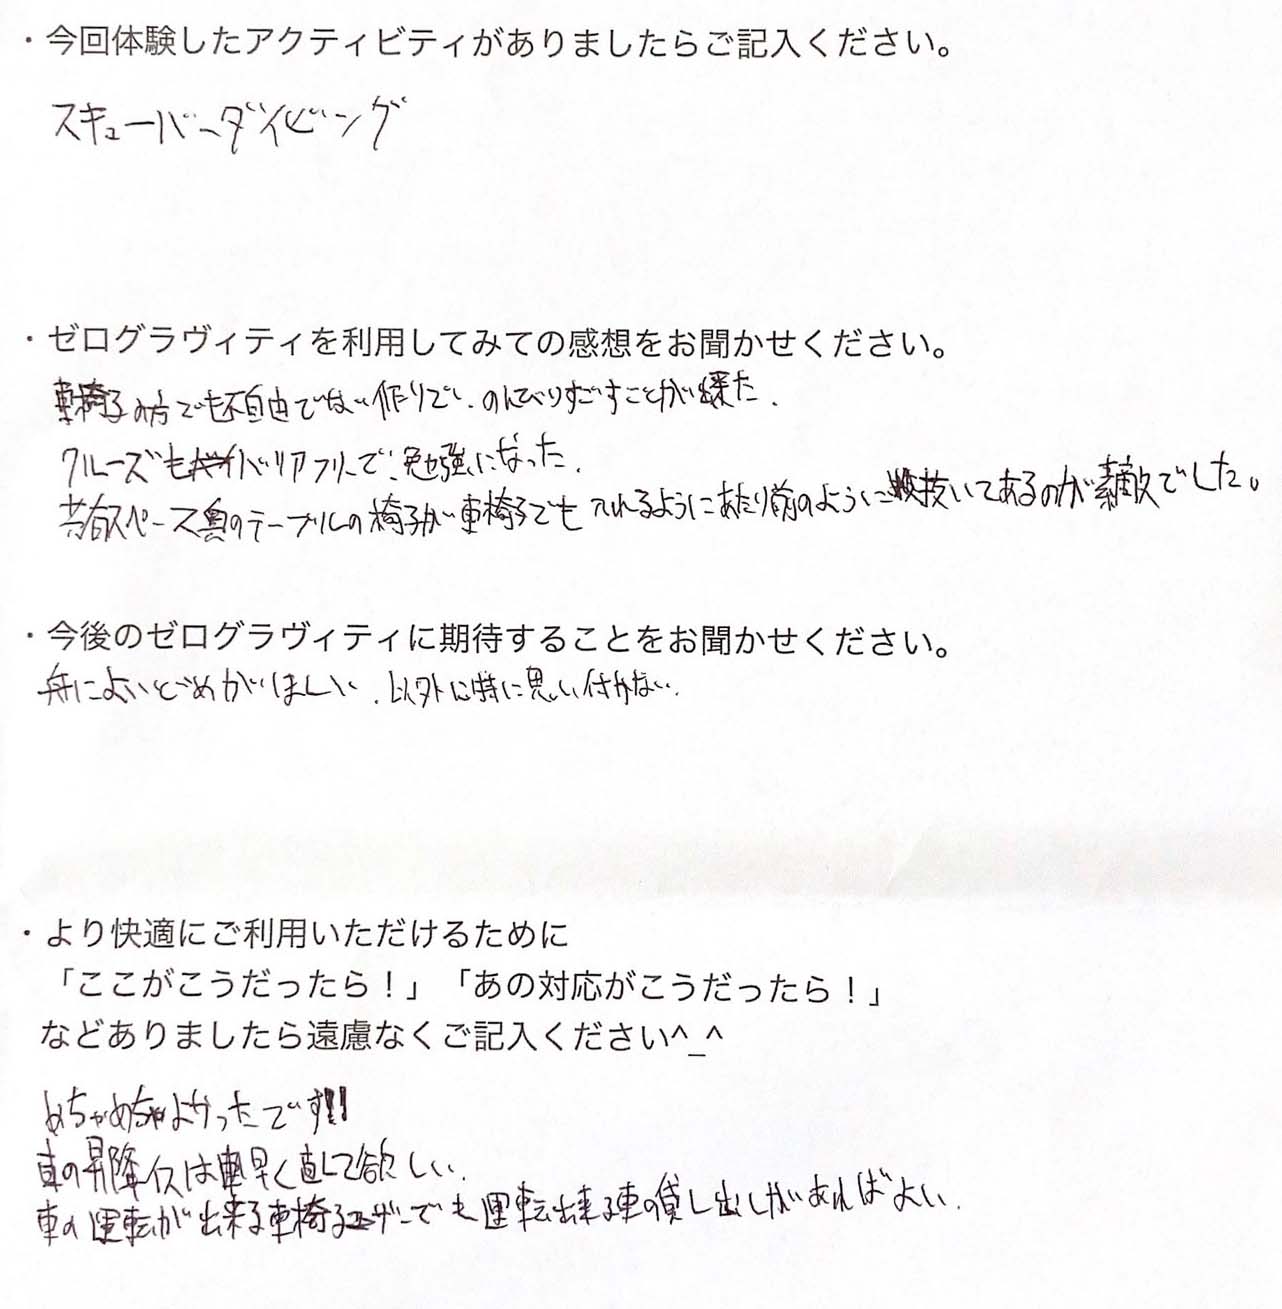 ・今回体験したアクティビティがありましたらご記入ください。
スキューバーダイビング
・ゼログラヴィティを利用してみての感想をお聞かせください。
車椅子の方でも不自由でない作りでい、のんびりすごすことが出来た。
クルーズもバリアフリーで、勉強になった。
共有スペース奥のテーブルの椅子が車椅子でも入れるようにあたり前のように抜いてあるのが素敵でした。
・今後のゼログラヴィティに期待することをお聞かせください。
舟によいどめがほしい、以外に特に思い付かない。
・より快適にご利用いただけるために
「ここがこうだったら！」「あの対応がこうだったら！」
などありましたら遠慮なくご記入ください^_^
めちゃめちゃよかったです!!!
車の昇降イスは早く直して欲しい。
車の運転が出来る車椅子ユーザーでも運転出来る車の貸し出しがあればよい。